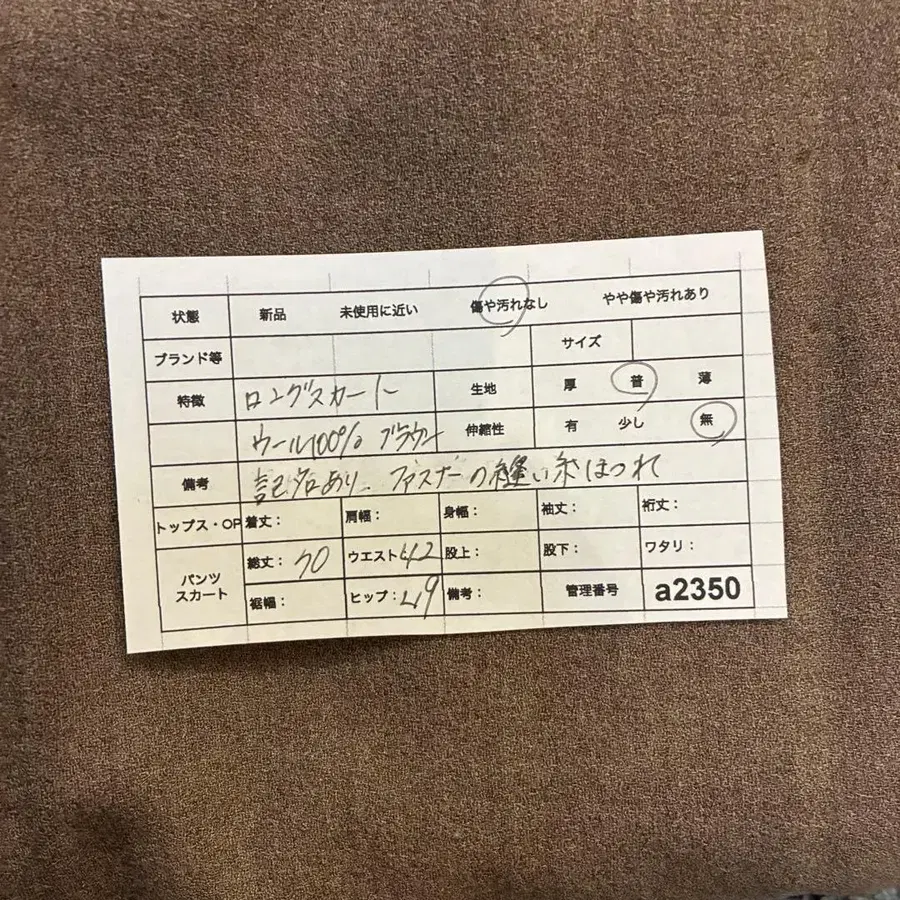 状態 新品 未使用に近い 傷や汚れなし やや傷や汚れあり
ブランド等 サイズ
特徴 ロングスカート 生地 厚 普 薄
ウール100% ブラウン 伸縮性 有 少し 無
備考 記名あり、ファスナーの縫い糸ほつれ
トップス・OP 着丈: 肩幅: 身幅: 袖丈: 裄丈:
パンツ スカート 総丈:70 ウエスト42 股上: 股下: ワタリ:
裾幅: ヒップ:49 備考: 管理番号 a2350